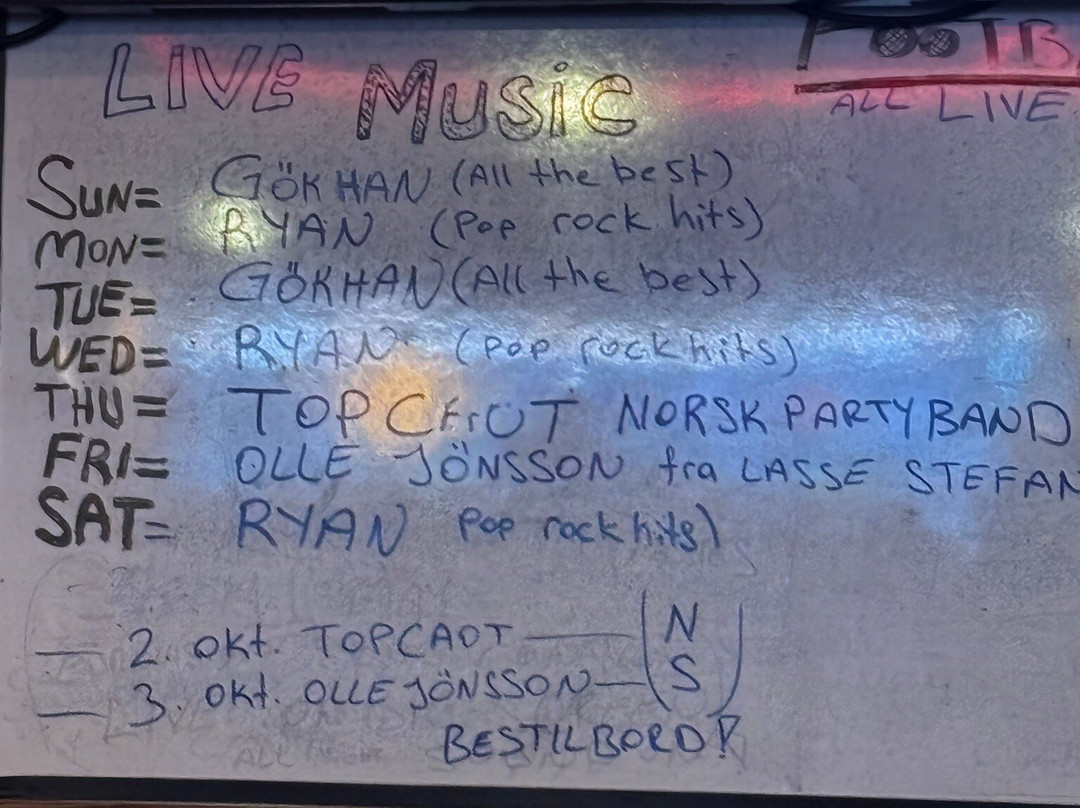 LIVE MUSiC
FOOTB
ALL LIVE
SUN= GÖKHAN (All the best)
MON= RYAN (Pop rock hits)
TUE= GÖKHAN (All the best)
WED= RYAN (Pop rock hits)
THU= TOP NORSK PARTYBAND
FRI= OLLE JÖNSSON fra LASSE STEFAN
SAT= RYAN Pop rock hits)
2. okt. TOPCAOT — N
3. okt. OLLE JÖNSSON — S
BESTILBORD!